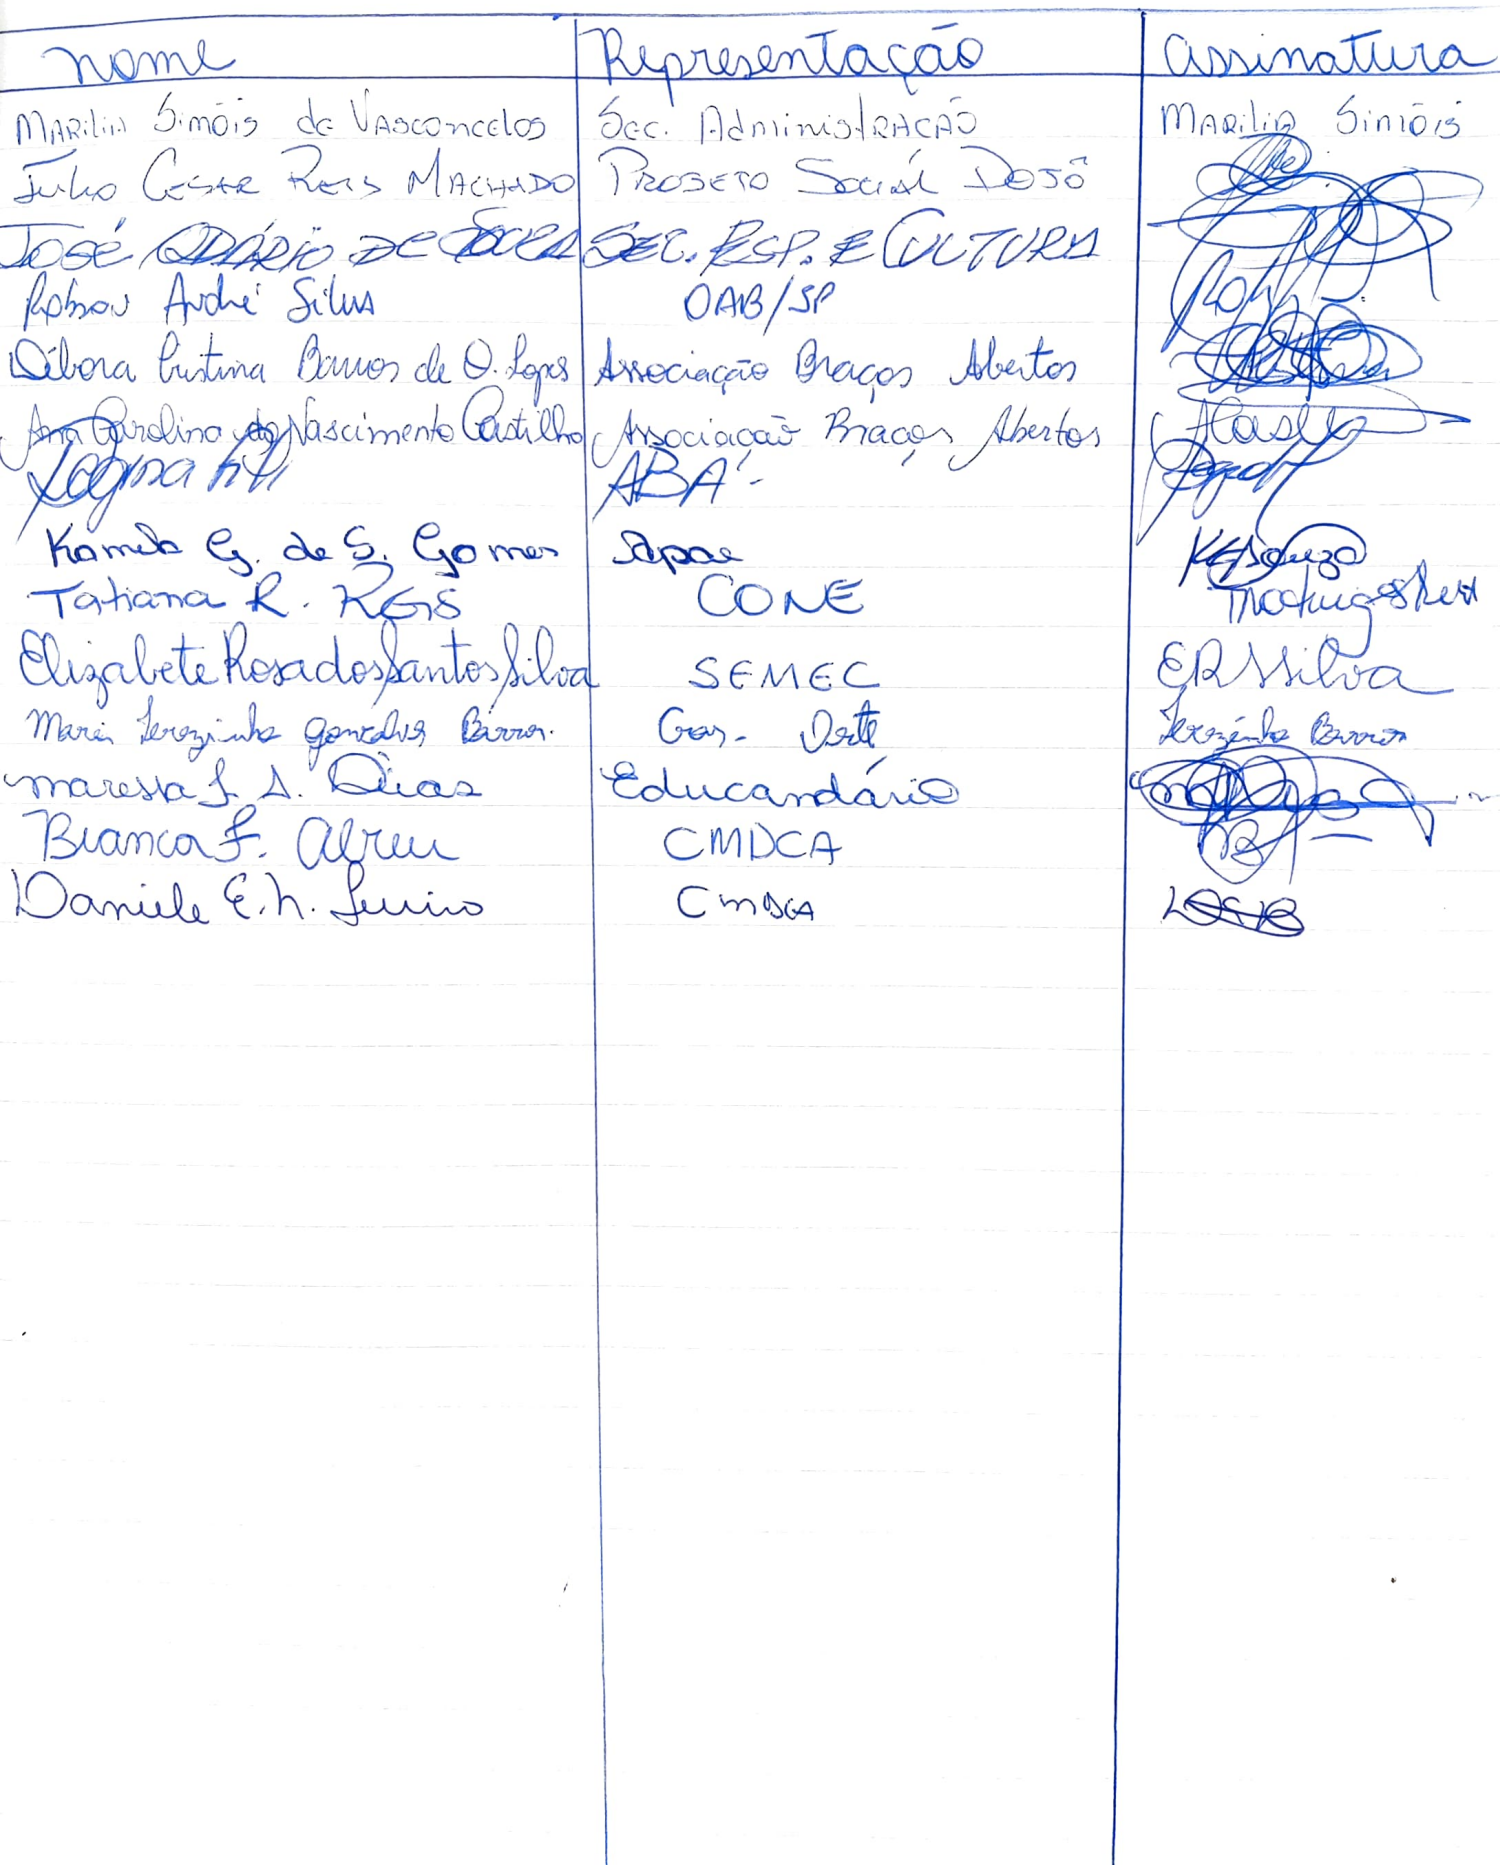 nome Representação assinatura
Marilia Simõis de Vasconcelos Sec. Administração Marilia Simõis
Julio Cesar Reis Machado Projeto Sociál Dojô
José de Souza Sec. Esp. e Cultura
Robson André Silva OAB/SP
Débora Cristina Barros de O. Lopes Associação Braços Abertos
Ana Carolina do Nascimento Castilho Associação Braços Abertos
ABA
Kamila G. de S. Gomes Apae
Tatiana R. Reis CONE
Elizabete Rosa dos Santos Silva SEMEC ERSSilva
Maria Terezinha Gonçalves Barros. Terezinha Barros
Maressa f. A. Dias Educandário
Bianca F. Abreu CMDCA
Daniele E. h. CMDCA